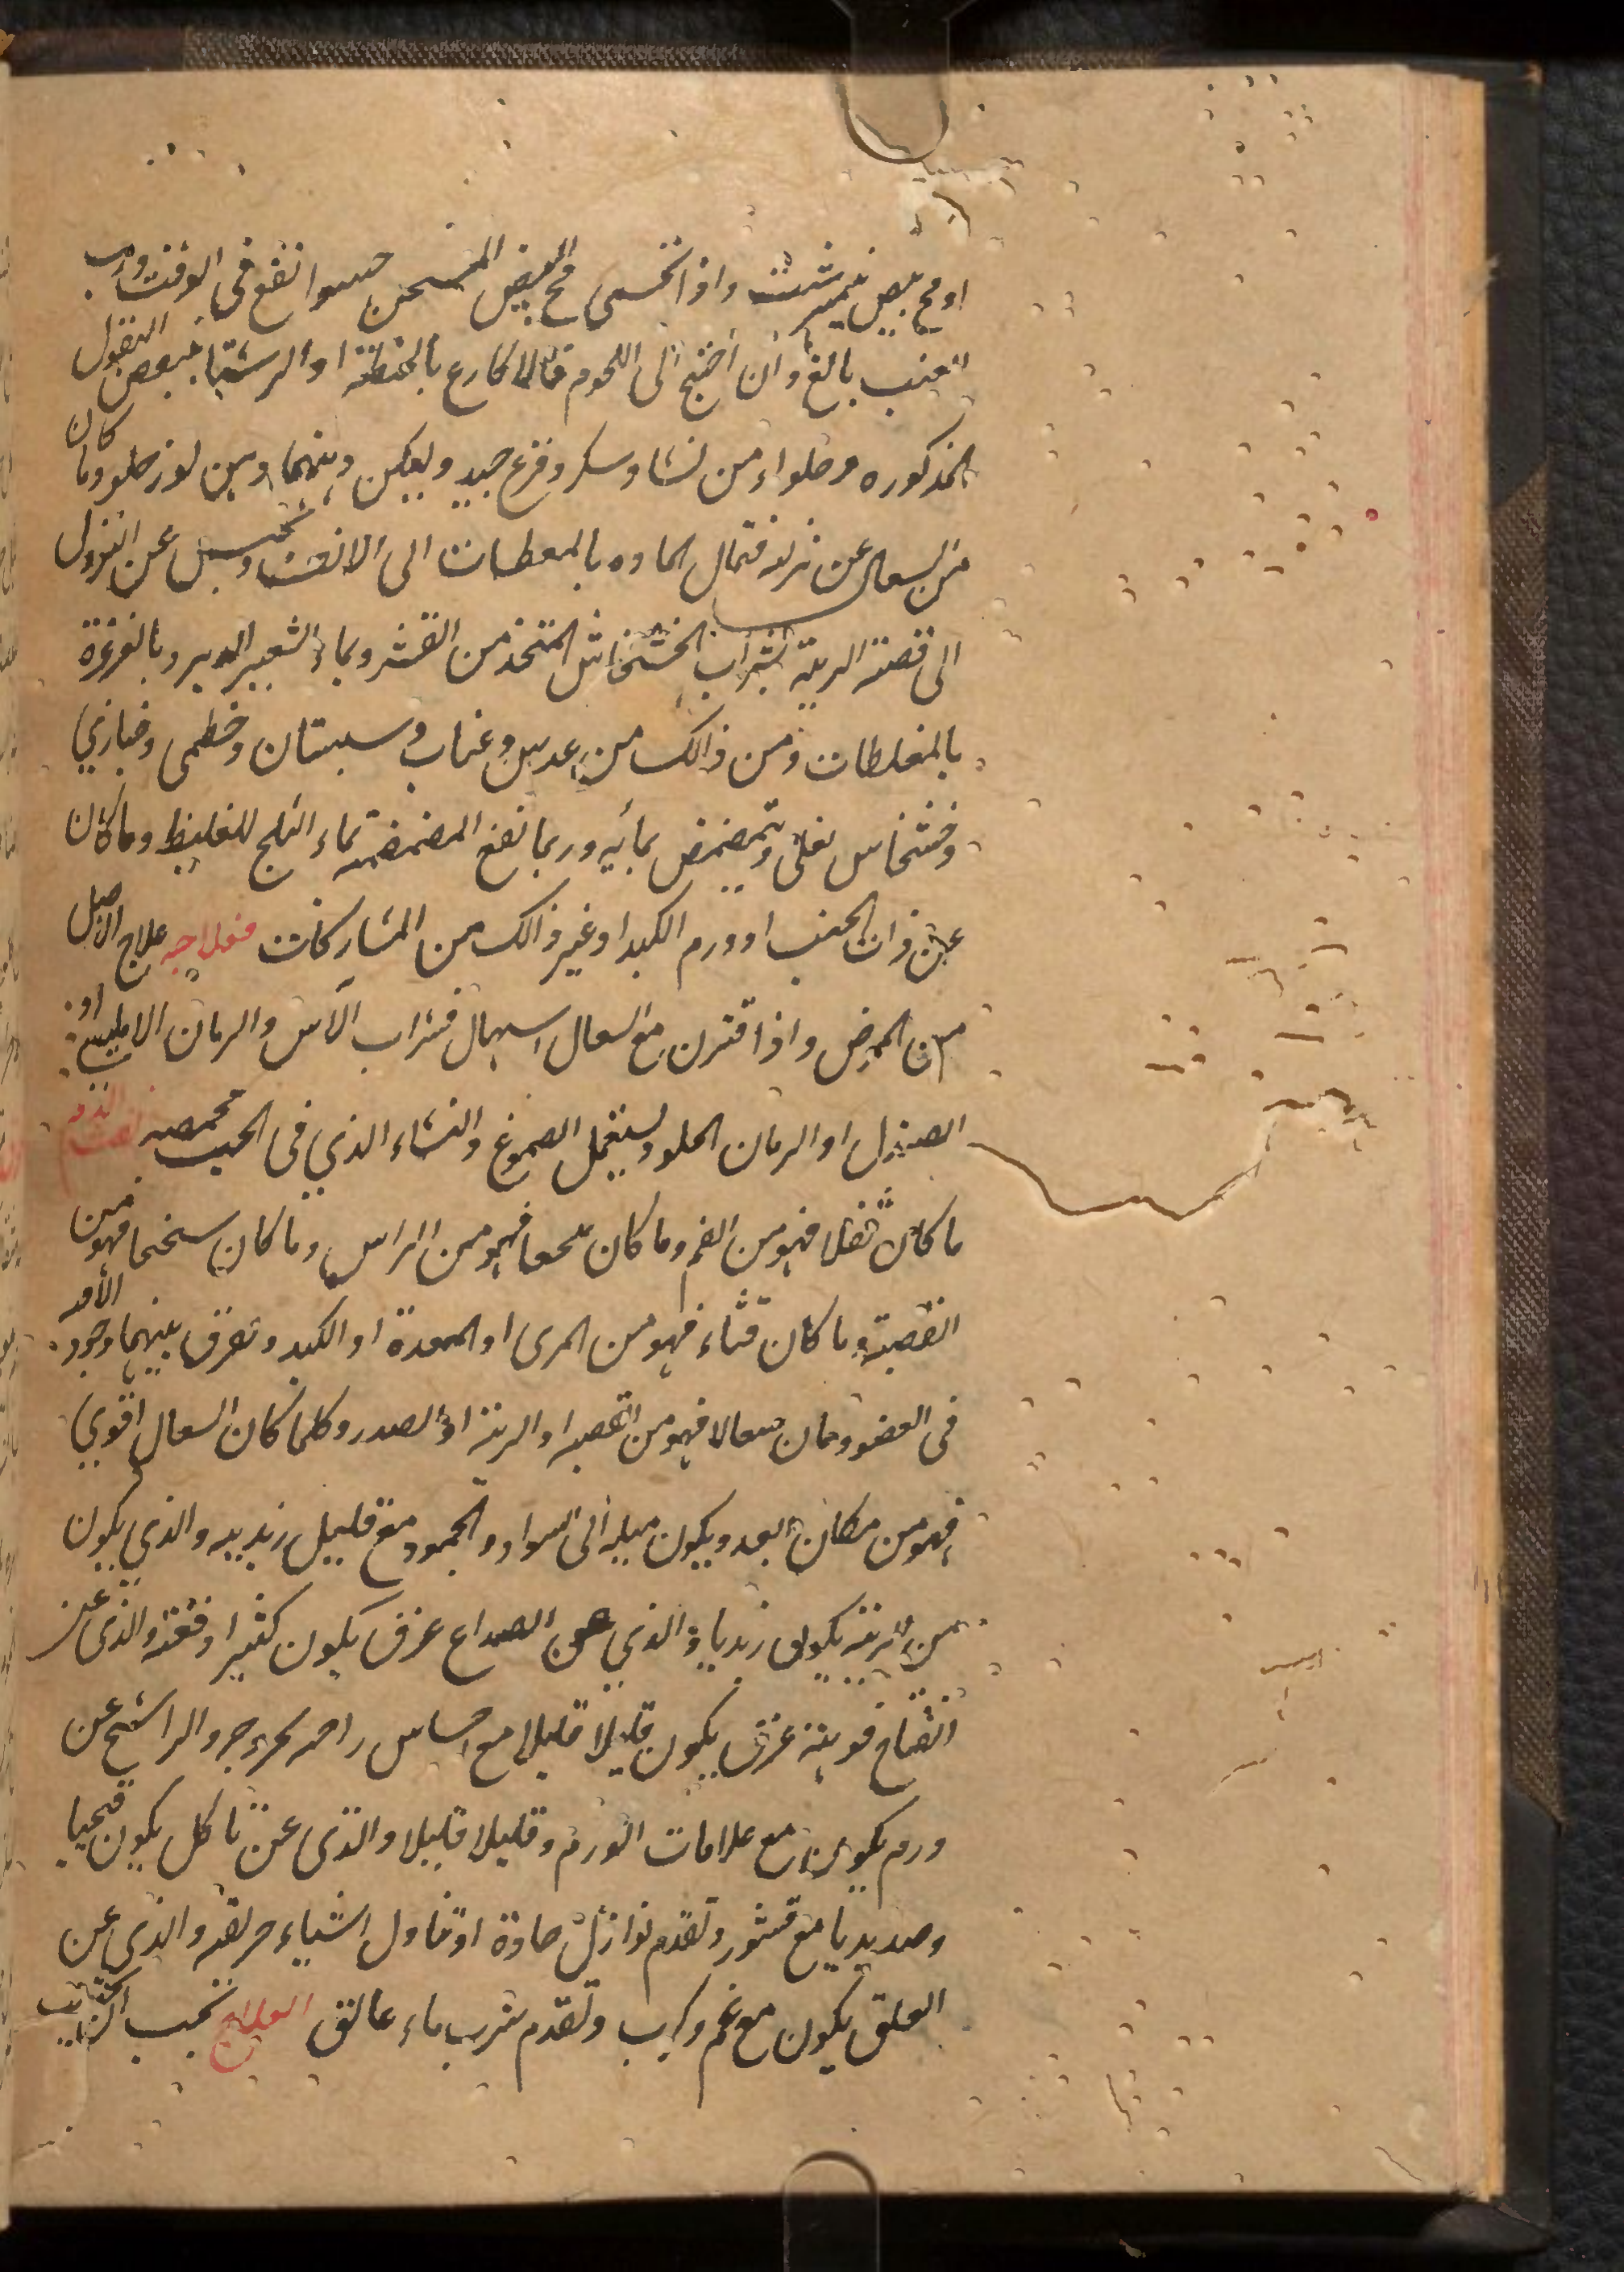 او مح بيض نيمبرشت واذا تحسى مح البيض المسخن حسوا نفع فى الوقت ورب
العنب بالغ وان احتيج الى اللحوم فالاكارع بالحنطة او الرشتا ببعض البقول
المذكوره وحلواء من نشا وسكر وقرع جيد وليكن دهنهما دهن لوز حلو وما كان
من السعال عن نزله فتمال الماده بالمعطسات الى الانف وتحبس عن النزول
الى قصبة الرية بشراب الخشخاش المتخذ من القشر وبماء الشعير المدبر وبالغرغرة
بالمغلظات ومن ذالك من عدس وعناب وسبستان وخطمى وخبازي
وخشخاس يغلى ويتمضمض بمائيه وربما نفع المضمضه بماء الثلج للغليظ وما كان
عن ذات الجنب او ورم الكبد او غير ذالك من المشاركات فعلاجه علاج الاصل
من المرض واذا اقترن مع السعال اسهال فشراب الآس والرمان الامليسى او
الصندل او الرمان الحلو ويستعمل الصموغ والنشاء الذي فى الحب محمصه نفث الدم
ما كان ثفلا فهو من الفم وما كان تنخعا فهو من الراس وما كان تنخما فهو من
القصبة وما كان قثاء فهو من المرى او المعدة او الكبد وتفرق بينهما وجود الافه
فى العضو وما كان سعالا فهو من القصبه او الرية او الصدر وكلما كان السعال اقوي
فهو من مكان ابعد ويكون ميله الى السواد والجمود مع قليل زبديه والذي يكون
من الرية يكون زبديا والذي عن الصداع عرق يكون كثيرا دفعة والذى عن
انفتاح فوهة عرق يكون قليلا قليلا مع احساس راحه بخروجه والراشح عن
ورم يكون مع علامات الورم وقليلا قليلا والذى عن تاكل يكون قيحيا
وصديديا مع قشور وتقدم نوازل حادة او تناول اشياء حريفه والذى عن
العلق يكون مع غم وكرب وتقدم شرب ماء عالق العلاج تجب